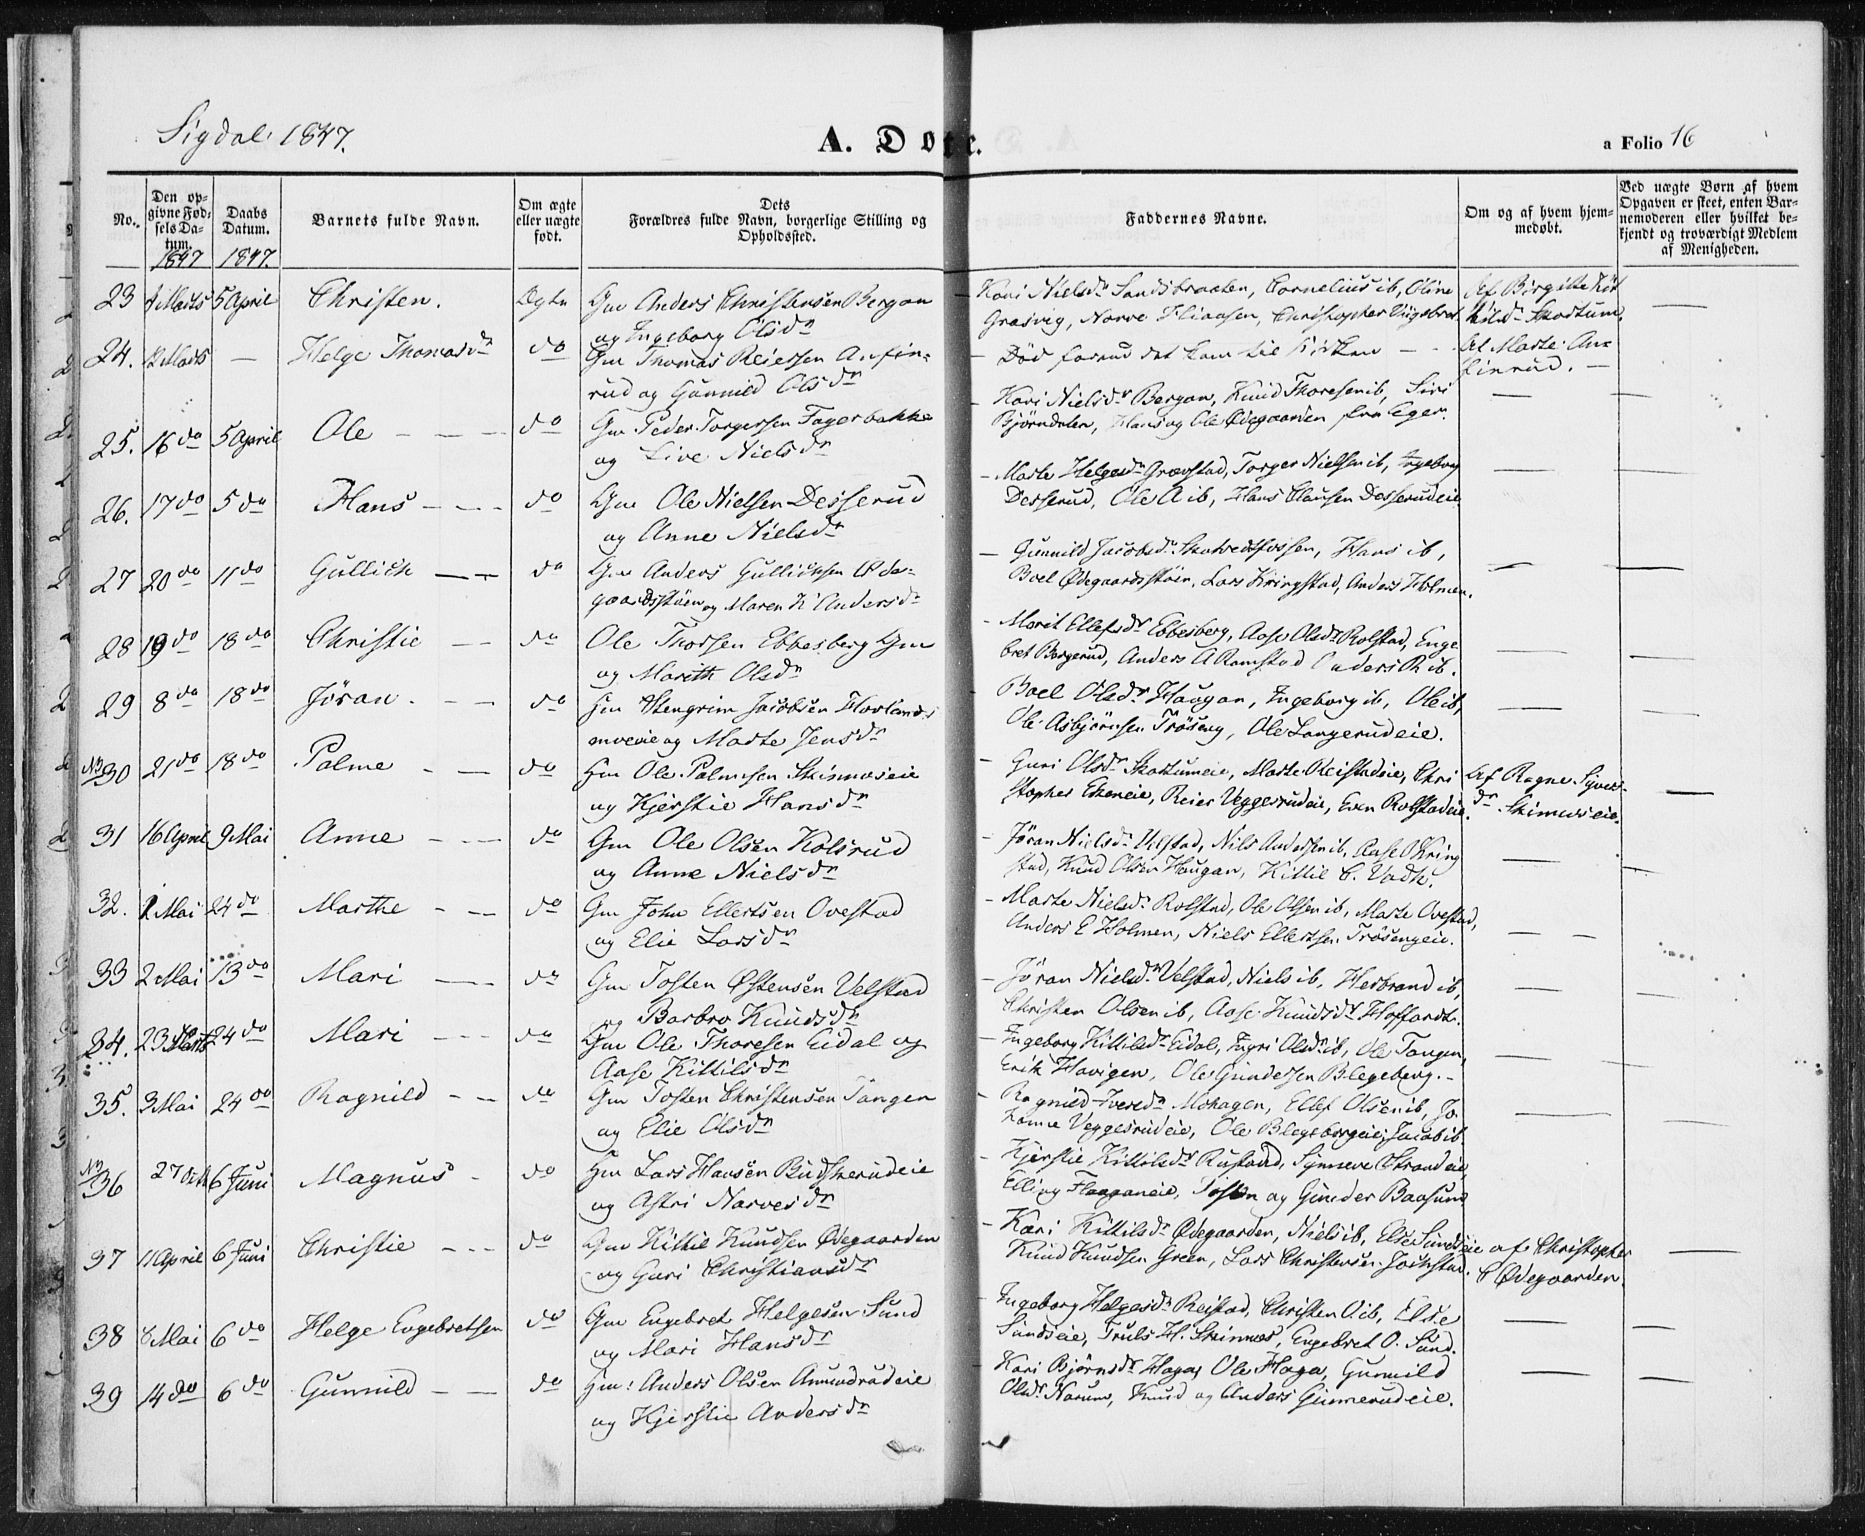 Sigdal 1847.
A. Døbte.
a Folio 16
No.
Den op-
givne Fød-
sels Da-
tum.
1847
Daabs
Datum.
1847.
Barnets fulde Navn.
Om ægte
eller uægte
født.
Dets
Forældres fulde Navn, borgerlige Stilling og
Opholdssted.
Faddernes Navne.
Om og af hvem hjem-
medøbt.
Ved uægte Børn af hvem
Opgaven er skeet, enten Bar-
nemoderen eller hvilket be-
kjendt og troværdigt Medlem
af Menigheden.
23 Marts 5 April Christen. Ægte Gm Anders Christensen Bergan
og Ingeborg Olsdr
Kari Nielsdr Sandsbraaten, Cornelius ib, Oline
Grasvig, Narve Christopher
Af Birgitte
Skartum.
24. Marts — Helge Thomasdr do Gm Thomas Reiersen Anfin-
rud og Gunnild Olsdr
— Død forend det kom til Kirken — -
Af Marte An-
finrud. —
25. 16 do 5 April Ole — — — do Gm Peder Torgersen Fagerbakke
og Live Nielsdr
— Kari Nielsdr Bergan, Knud Thoresen ib, Siri
Bjørndalen, Hans og Ole Ødegaarden fra Eger.
26. 17 do 5 do Hans — — - do Gm Ole Nielsen Desserud
og Anne Nielsdr
— Marte Helgesdr Grævstad, Torger Nielsen ib, Ingeborg
Desserud, Ole A ib, Hans Clausen Desserudeie.
27 20 do 11 do Gullich — — do Gm Anders Gullichsen Øde-
gaardsstøen og Maren K Andersdr
— Gunnild Jacobsdr Skatvedtfossen, Hans ib,
Boel Ødegaardsstøen, Lars Kringstad, Anders Holmen.
28 19 do 18 do Christie — — do Ole Thorsen Ebbesberg Gm
og Marith Olsdr
— Marit Ellefsdr Ebbesberg, Aase Olsdr Rolstad, Enge
bret Borgerud, Anders A Ramstad Anders R ib.
29 8 do 18 do Jøran. - — do Hm Stengrim Jacobsen Hovlands
moeie og Marte Jensdr
Boel Olsdr Haugan, Ingeborg ib, Ole ib,
Ole Asbjørnsen Trøseng, Ole Langerudeie.
NB
30 21 do 18 do Palme - — do Hm Ole Palmesen Skinneseie
og Kjerstie Hansdr
— Guri Olsdr Skartumeie, Marte Reistadeie, Chri
stopher Ekeneie, Reier Veggerudeie, Even Rolstadeie.
Af Ragne Syvers-
dr Skinneseie.
31 16 April 9 Mai Anne — - — do Gm Ole Olsen Kolsrud
og Anne Nielsdr
— Jøran Nielsdr Velstad, Nils Andersen ib, Aase Kring
stad, Knud Olsen Haugan, Kittil C. Vadh.
32. 1 Mai 24 do Marthe - — do Gm John Ellertsen Ovestad
og Elie Larsdr
— Marte Nielsdr Rolstad, Ole Olsen ib, Marte Ovestad,
Anders E Holmen, Niels Ellertsen Trøsengeie.
33 2 Mai 13 do Mari — — do Gm Tosten Østensen Velstad
og Barbro Knudsdr
— Jøran Nielsdr Velstad, Niels ib, Herbrand ib,
Christen Olsen ib, Aase Knudsdr Hoffardt.
34. 23 Marts 24 do Mari - — - do Gm Ole Thoresen Eidal og
Aase Kittilsdr
— Ingeborg Kittilsdr Eidal, Ingri Olsdr ib, Ole Tangen,
Erik Havigen, Ole Gundersen Blegeberg. -
35. 3 Mai 24 do Ragnild - — do Gm Tosten Christensen Tangen
og Elie Olsdr
— Ragnild Iversdr Mohagen, Ellef Olsen ib, Jo
hanne Veggerudeie, Ole Blegebergeie, Jacob ib.
NB
36 27 Oct 6 Juni Magnus - do Hm Lars Hansen Budskerudeie
og Astri Narvesdr
— Kjerstie Kittilsdr Rustad, Synneve Strandeie,
Elling Haaganeie, Tosten og Gunder Baasum.
37 11 April 6 Juni Christie — - - do Gm Kittil Knudsen Ødegaarden
og Guri Christiansdr
— Kari Kittilsdr Ødegaarden, Niels ib, Else Sundseie
Knud Knudsen Green, Lars Christensen Jochstad.
af Christopher
C Ødegaarden.
38 8 Mai 6 do Helge Engebretsen do Gm Engebret Helgesen Sund
og Mari Hansdr
— Ingeborg Helgesdr Reistad, Christen O. ib, Else
Sundseie, Truls H. Skinnes, Engebret O. Sund.
39 14 do 6 do Gunnild — — do Hm: Anders Olsen Amundrudeie
og Kjerstie Andersdr
Kari Bjørnsdr Haga, Ole Haga, Gunnild
Olsdr Narum, Knud og Anders Gunnerudeie.